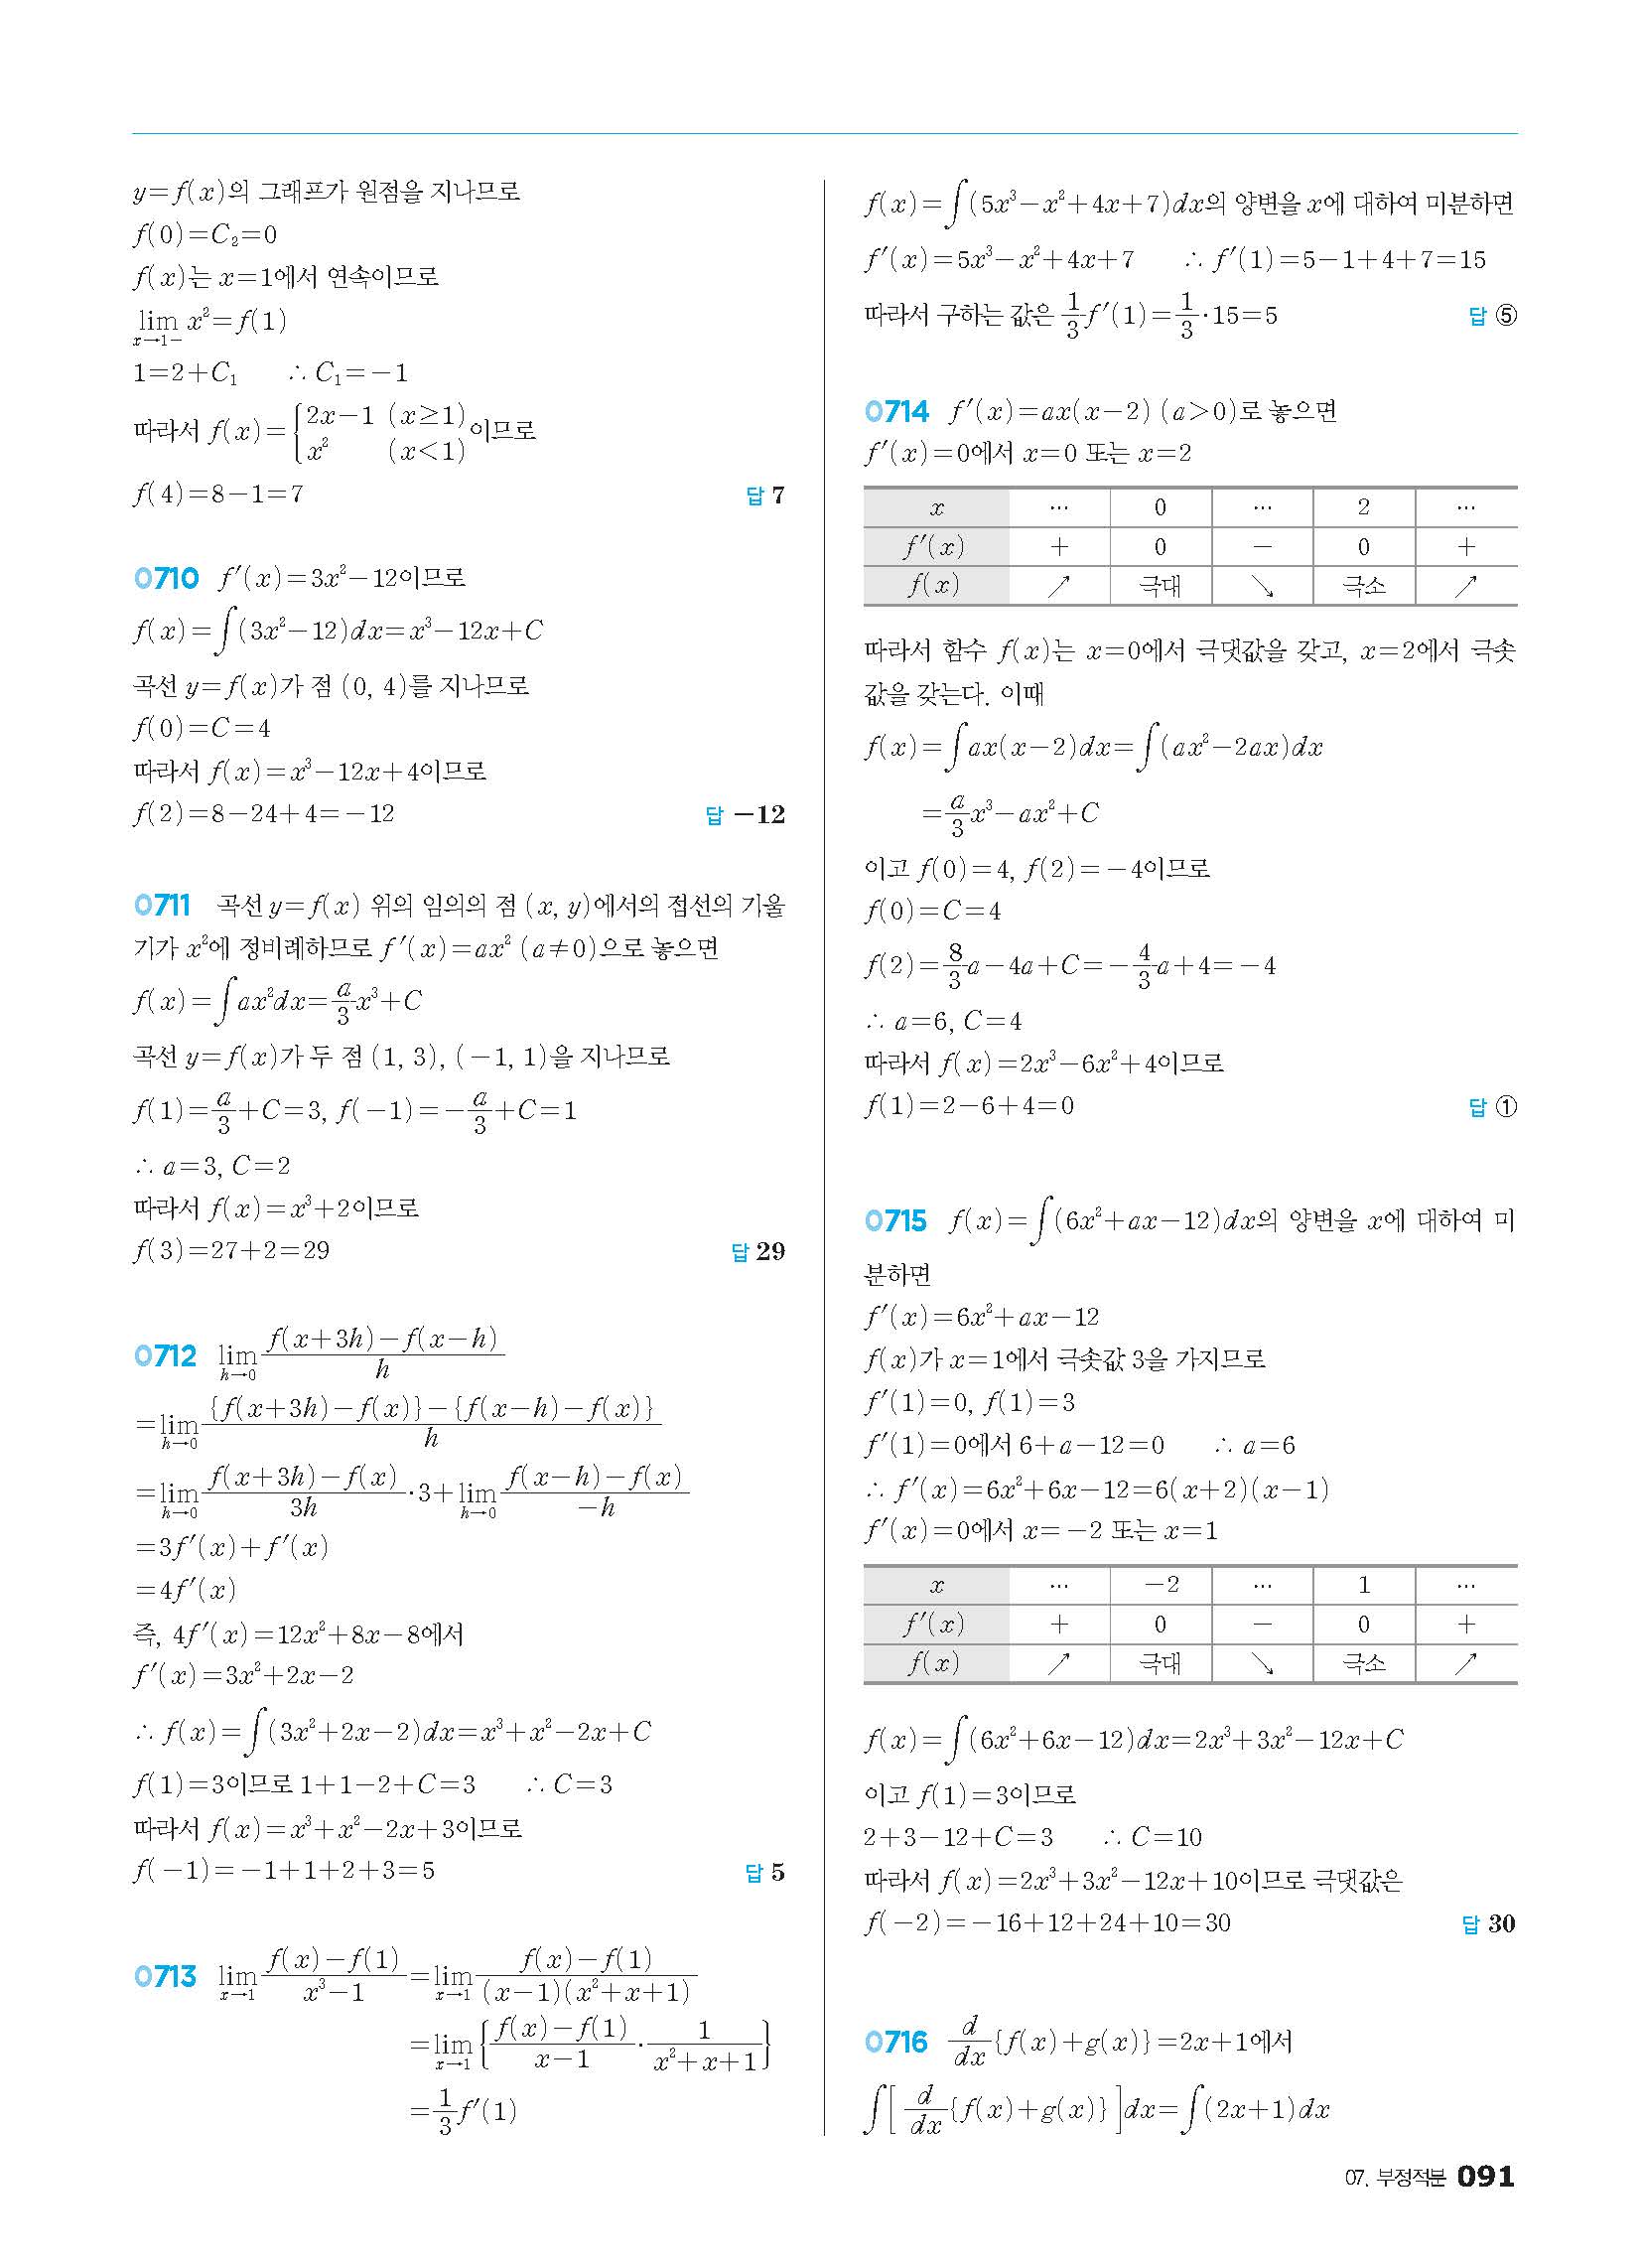 y=f(x)의 그래프가 원점을 지나므로
f(0)=C₂=0
f(x)는 x=1에서 연속이므로
lim_{x→1-} x²=f(1)
1=2+C₁ ∴ C₁=-1
따라서 f(x)={2x-1 (x≥1), x² (x<1)}이므로
f(4)=8-1=7 답 7
0710 f′(x)=3x²-12이므로
f(x)=∫(3x²-12)dx=x³-12x+C
곡선 y=f(x)가 점 (0, 4)를 지나므로
f(0)=C=4
따라서 f(x)=x³-12x+4이므로
f(2)=8-24+4=-12 답 -12
0711 곡선 y=f(x) 위의 임의의 점 (x, y)에서의 접선의 기울
기가 x²에 정비례하므로 f′(x)=ax² (a≠0)으로 놓으면
f(x)=∫ax²dx=a/3 x³+C
곡선 y=f(x)가 두 점 (1, 3), (-1, 1)을 지나므로
f(1)=a/3+C=3, f(-1)=-a/3+C=1
∴ a=3, C=2
따라서 f(x)=x³+2이므로
f(3)=27+2=29 답 29
0712 lim_{h→0} {f(x+3h)-f(x-h)}/h
=lim_{h→0} [{f(x+3h)-f(x)}-{f(x-h)-f(x)}]/h
=lim_{h→0} {f(x+3h)-f(x)}/3h ·3+lim_{h→0} {f(x-h)-f(x)}/-h
=3f′(x)+f′(x)
=4f′(x)
즉, 4f′(x)=12x²+8x-8에서
f′(x)=3x²+2x-2
∴ f(x)=∫(3x²+2x-2)dx=x³+x²-2x+C
f(1)=3이므로 1+1-2+C=3 ∴ C=3
따라서 f(x)=x³+x²-2x+3이므로
f(-1)=-1+1+2+3=5 답 5
0713 lim_{x→1} {f(x)-f(1)}/(x³-1)=lim_{x→1} {f(x)-f(1)}/{(x-1)(x²+x+1)}
=lim_{x→1} {(f(x)-f(1))/(x-1) · 1/(x²+x+1)}
=1/3 f′(1)
f(x)=∫(5x³-x²+4x+7)dx의 양변을 x에 대하여 미분하면
f′(x)=5x³-x²+4x+7 ∴ f′(1)=5-1+4+7=15
따라서 구하는 값은 1/3 f′(1)=1/3·15=5 답 ⑤
0714 f′(x)=ax(x-2) (a>0)로 놓으면
f′(x)=0에서 x=0 또는 x=2
x ⋯ 0 ⋯ 2 ⋯
f′(x) + 0 - 0 +
f(x) ↗ 극대 ↘ 극소 ↗
따라서 함수 f(x)는 x=0에서 극댓값을 갖고, x=2에서 극솟
값을 갖는다. 이때
f(x)=∫ax(x-2)dx=∫(ax²-2ax)dx
=a/3 x³-ax²+C
이고 f(0)=4, f(2)=-4이므로
f(0)=C=4
f(2)=8/3 a-4a+C=-4/3 a+4=-4
∴ a=6, C=4
따라서 f(x)=2x³-6x²+4이므로
f(1)=2-6+4=0 답 ①
0715 f(x)=∫(6x²+ax-12)dx의 양변을 x에 대하여 미
분하면
f′(x)=6x²+ax-12
f(x)가 x=1에서 극솟값 3을 가지므로
f′(1)=0, f(1)=3
f′(1)=0에서 6+a-12=0 ∴ a=6
∴ f′(x)=6x²+6x-12=6(x+2)(x-1)
f′(x)=0에서 x=-2 또는 x=1
x ⋯ -2 ⋯ 1 ⋯
f′(x) + 0 - 0 +
f(x) ↗ 극대 ↘ 극소 ↗
f(x)=∫(6x²+6x-12)dx=2x³+3x²-12x+C
이고 f(1)=3이므로
2+3-12+C=3 ∴ C=10
따라서 f(x)=2x³+3x²-12x+10이므로 극댓값은
f(-2)=-16+12+24+10=30 답 30
0716 d/dx{f(x)+g(x)}=2x+1에서
∫[d/dx{f(x)+g(x)}]dx=∫(2x+1)dx
07. 부정적분 091